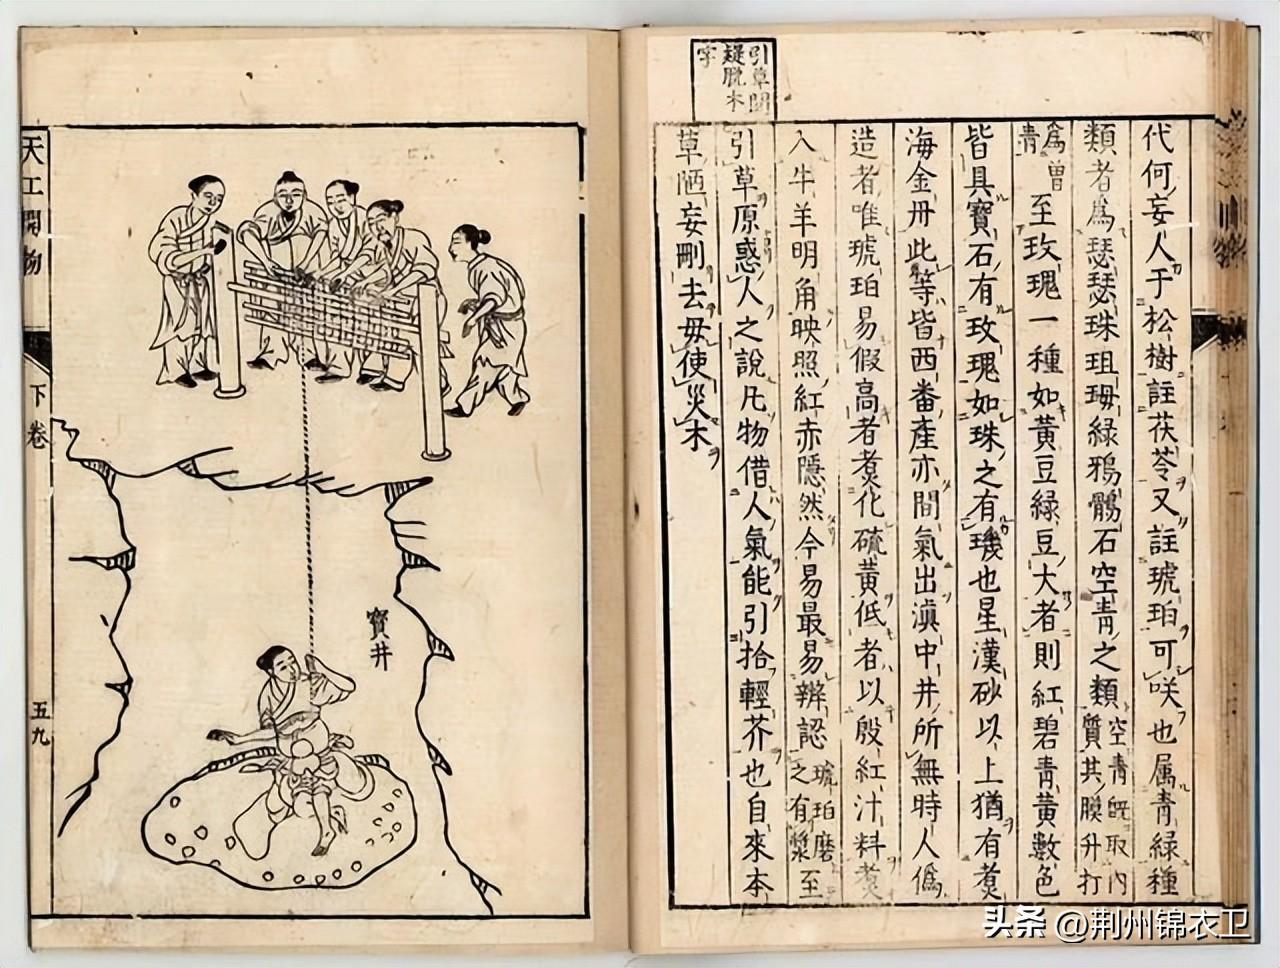 引草間
疑脱本
字
代何妄人于松樹註茯苓又註琥珀可咲也属青綠種
類者爲瑟瑟珠珇珻綠鴉鶻石空青之類空青既取內質其膜升打
爲曽青至玫瑰一種如黃豆綠豆大者則紅碧青黃數色
皆具寶石有玫瑰如珠之有璣也星漢砂以上猶有煑
海金丹此等皆西番產亦間氣出滇中井所無時人偽
造者唯琥珀易假高者煑化硫黃低者以殷紅汁料煑
入牛羊明角映照紅赤隱然今易最易辨認琥珀磨之有漿至
引草原惑人之說凡物借人氣能引拾輕芥也自來本
草陋妄刪去毋使災木
寶井
天工開物
下卷
五九
头条 @荆州锦衣卫